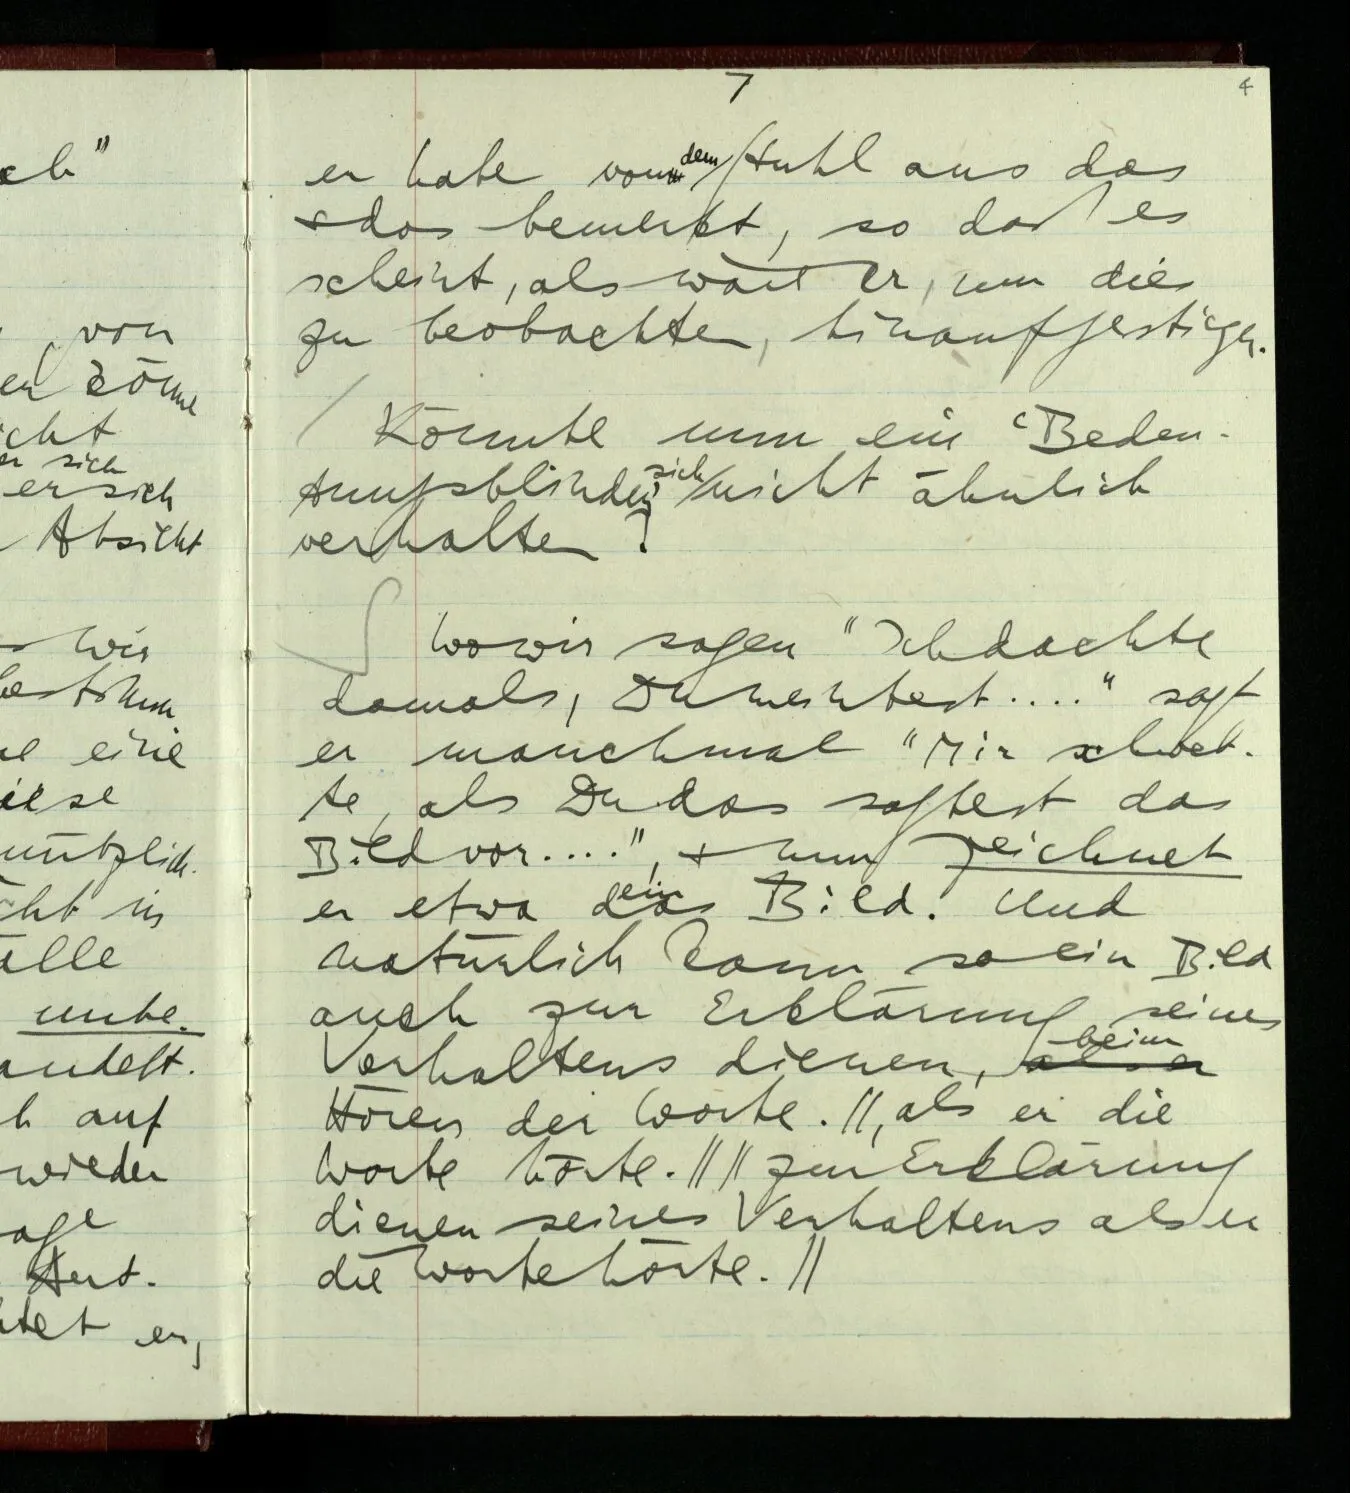 ch"
von
er könne
icht
er sich
er sich
Absicht
wir
bestimm
ne eine
iese
nützlich.
cht in
älle
unbe.
andelt.
h auf
wieder
age
htet er,
7
4
er habe von dem Stuhl aus das
& das bemerkt, so daß es
scheint, als wäre er, um dies
zu beobachten, hinaufgestiegen.
Könnte nun ein 'Beden-
tungsblinder' sich nicht ähnlich
verhalten?
Wo wir sagen "Ich dachte
damals, Du meintest ...." sagt
er manchmal "Mir schweb-
te, als Du das sagtest das
Bild vor ....", & nun zeichnet
er etwa ein Bild. Und
natürlich kann so ein Bild
auch zur Erklärung seines
Verhaltens dienen, als er beim
Hören der Worte. //, als er die
Worte hörte. // // zur Erklärung
dienen seines Verhaltens als er
die Worte hörte. //